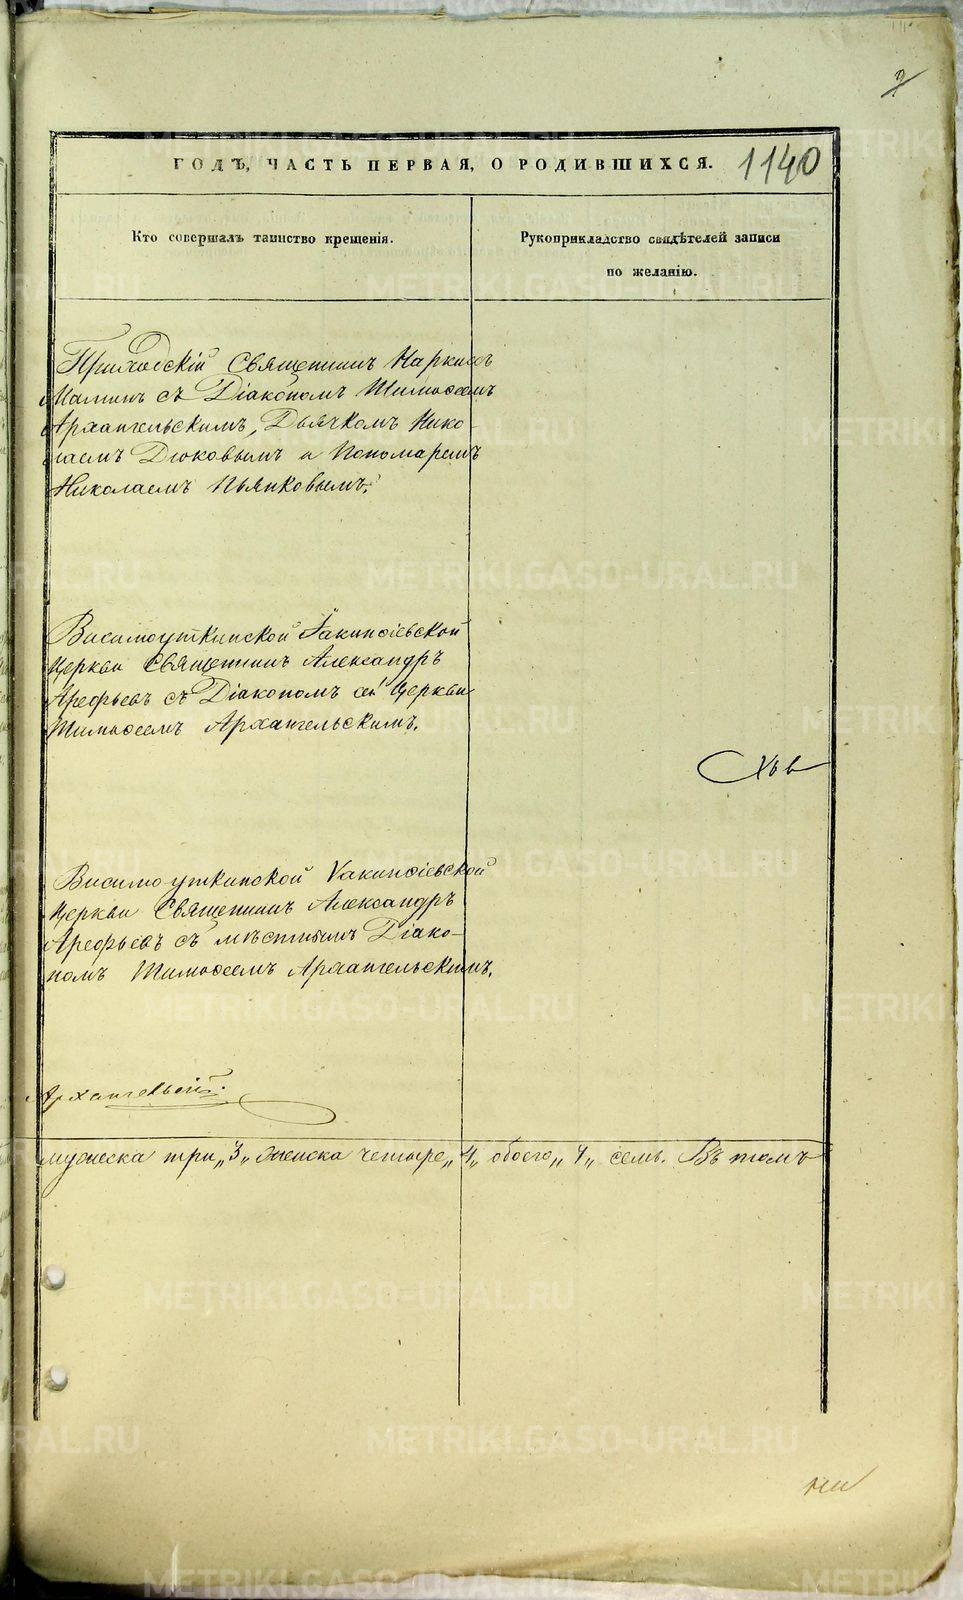 ГОДЪ, ЧАСТЬ ПЕРВАЯ, О РОДИВШИХСЯ.
1140
Кто совершалъ таинство крещенія.
Рукоприкладство свидѣтелей записи
по желанію.
Приходскій Священникъ Наркисъ
Маминъ съ Діакономъ Тимофеемъ
Архангельскимъ, Дьячкомъ Нико-
лаемъ Дюковымъ и Пономаремъ
Николаемъ Пьянковымъ.
Висимоуткинской Іакинфіевской
Церкви Священникъ Александръ
Арефьевъ съ Діакономъ Церкви
Тимофеемъ Архангельскимъ.
Висимоуткинской Іакинфіевской
Церкви Священникъ Александръ
Арефьевъ съ мѣстнымъ Діако-
номъ Тимофеемъ Архангельскимъ.
Архангельскій.
мужеска три „3„ женска четыре „4„ обоего „7„ семь. Въ томъ
METRIKI.GASO-URAL.RU